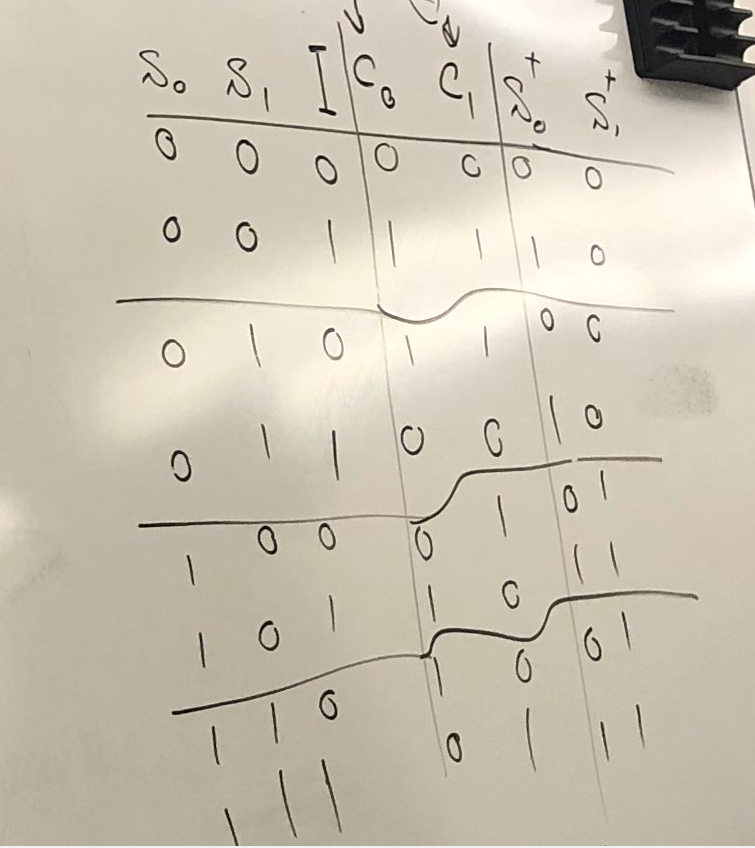 S₀ S₁ I C₀ C₁ S₀⁺ S₁⁺
0 0 0 0 0 0 0
0 0 1 1 1 1 0
0 1 0 1 1 0 0
0 1 1 0 0 1 0
1 0 0 0 1 0 1
1 0 1 1 0 1 1
1 1 0 1 0 0 1
1 1 1 0 1 1 1